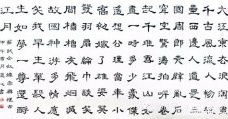 大江東去浪淘盡
千古風流人物故
壘西邊人道是三
國周郎赤壁亂石
穿空驚濤拍岸捲
起千堆雪江山如
畫一時多少豪傑
遙想公瑾當年小
喬初嫁了雄姿英
發羽扇綸巾談笑
間檣櫓灰飛煙滅
故國神遊多情應
笑我早生華髮人
生如夢一尊還酹
江月